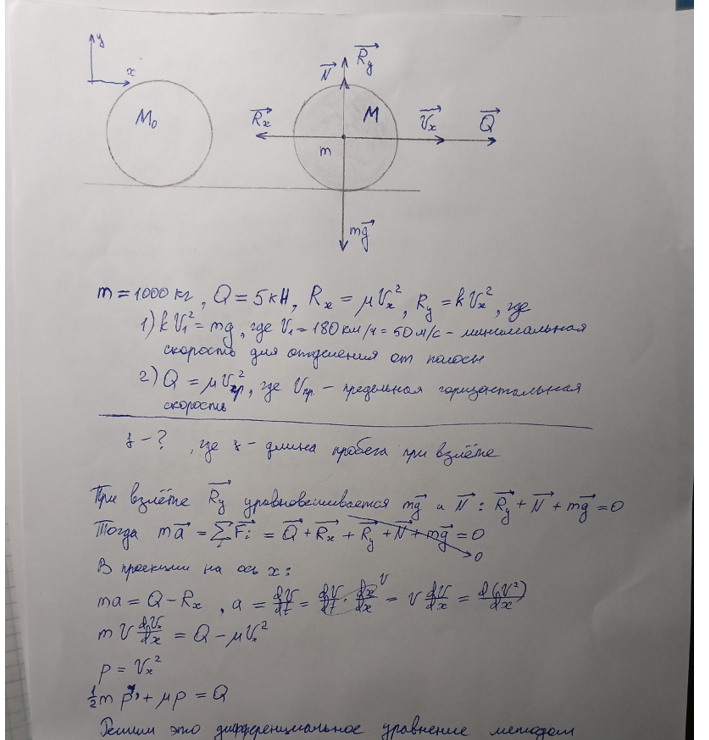 y
x
M₀
N⃗ R⃗y
R⃗x M V⃗x Q⃗
m
mg⃗
m = 1000 кг, Q = 5 кН, Rx = μVx², Ry = kVx², где
1) kV₁² = mg, где V₁ = 180 км/ч = 50 м/с - минимальная
скорость для отделения от полосы
2) Q = μVпр², где Vпр - предельная горизонтальная
скорость
z - ? , где z - длина пробега при взлёте
При взлёте R⃗y уравновешивается mg⃗ и N⃗ : R⃗y + N⃗ + mg⃗ = 0
Тогда ma⃗ = ΣF⃗i = Q⃗ + R⃗x + R⃗y + N⃗ + mg⃗ = 0
0
В проекции на ось x:
ma = Q - Rx , a = dV/dt = dV/dt · dx/dx V = V dV/dx = d(V²)/dx
mV dVx/dx = Q - μVx²
p = Vx²
1/2 m p' + μp = Q
Решим это дифференциальное уравнение методом